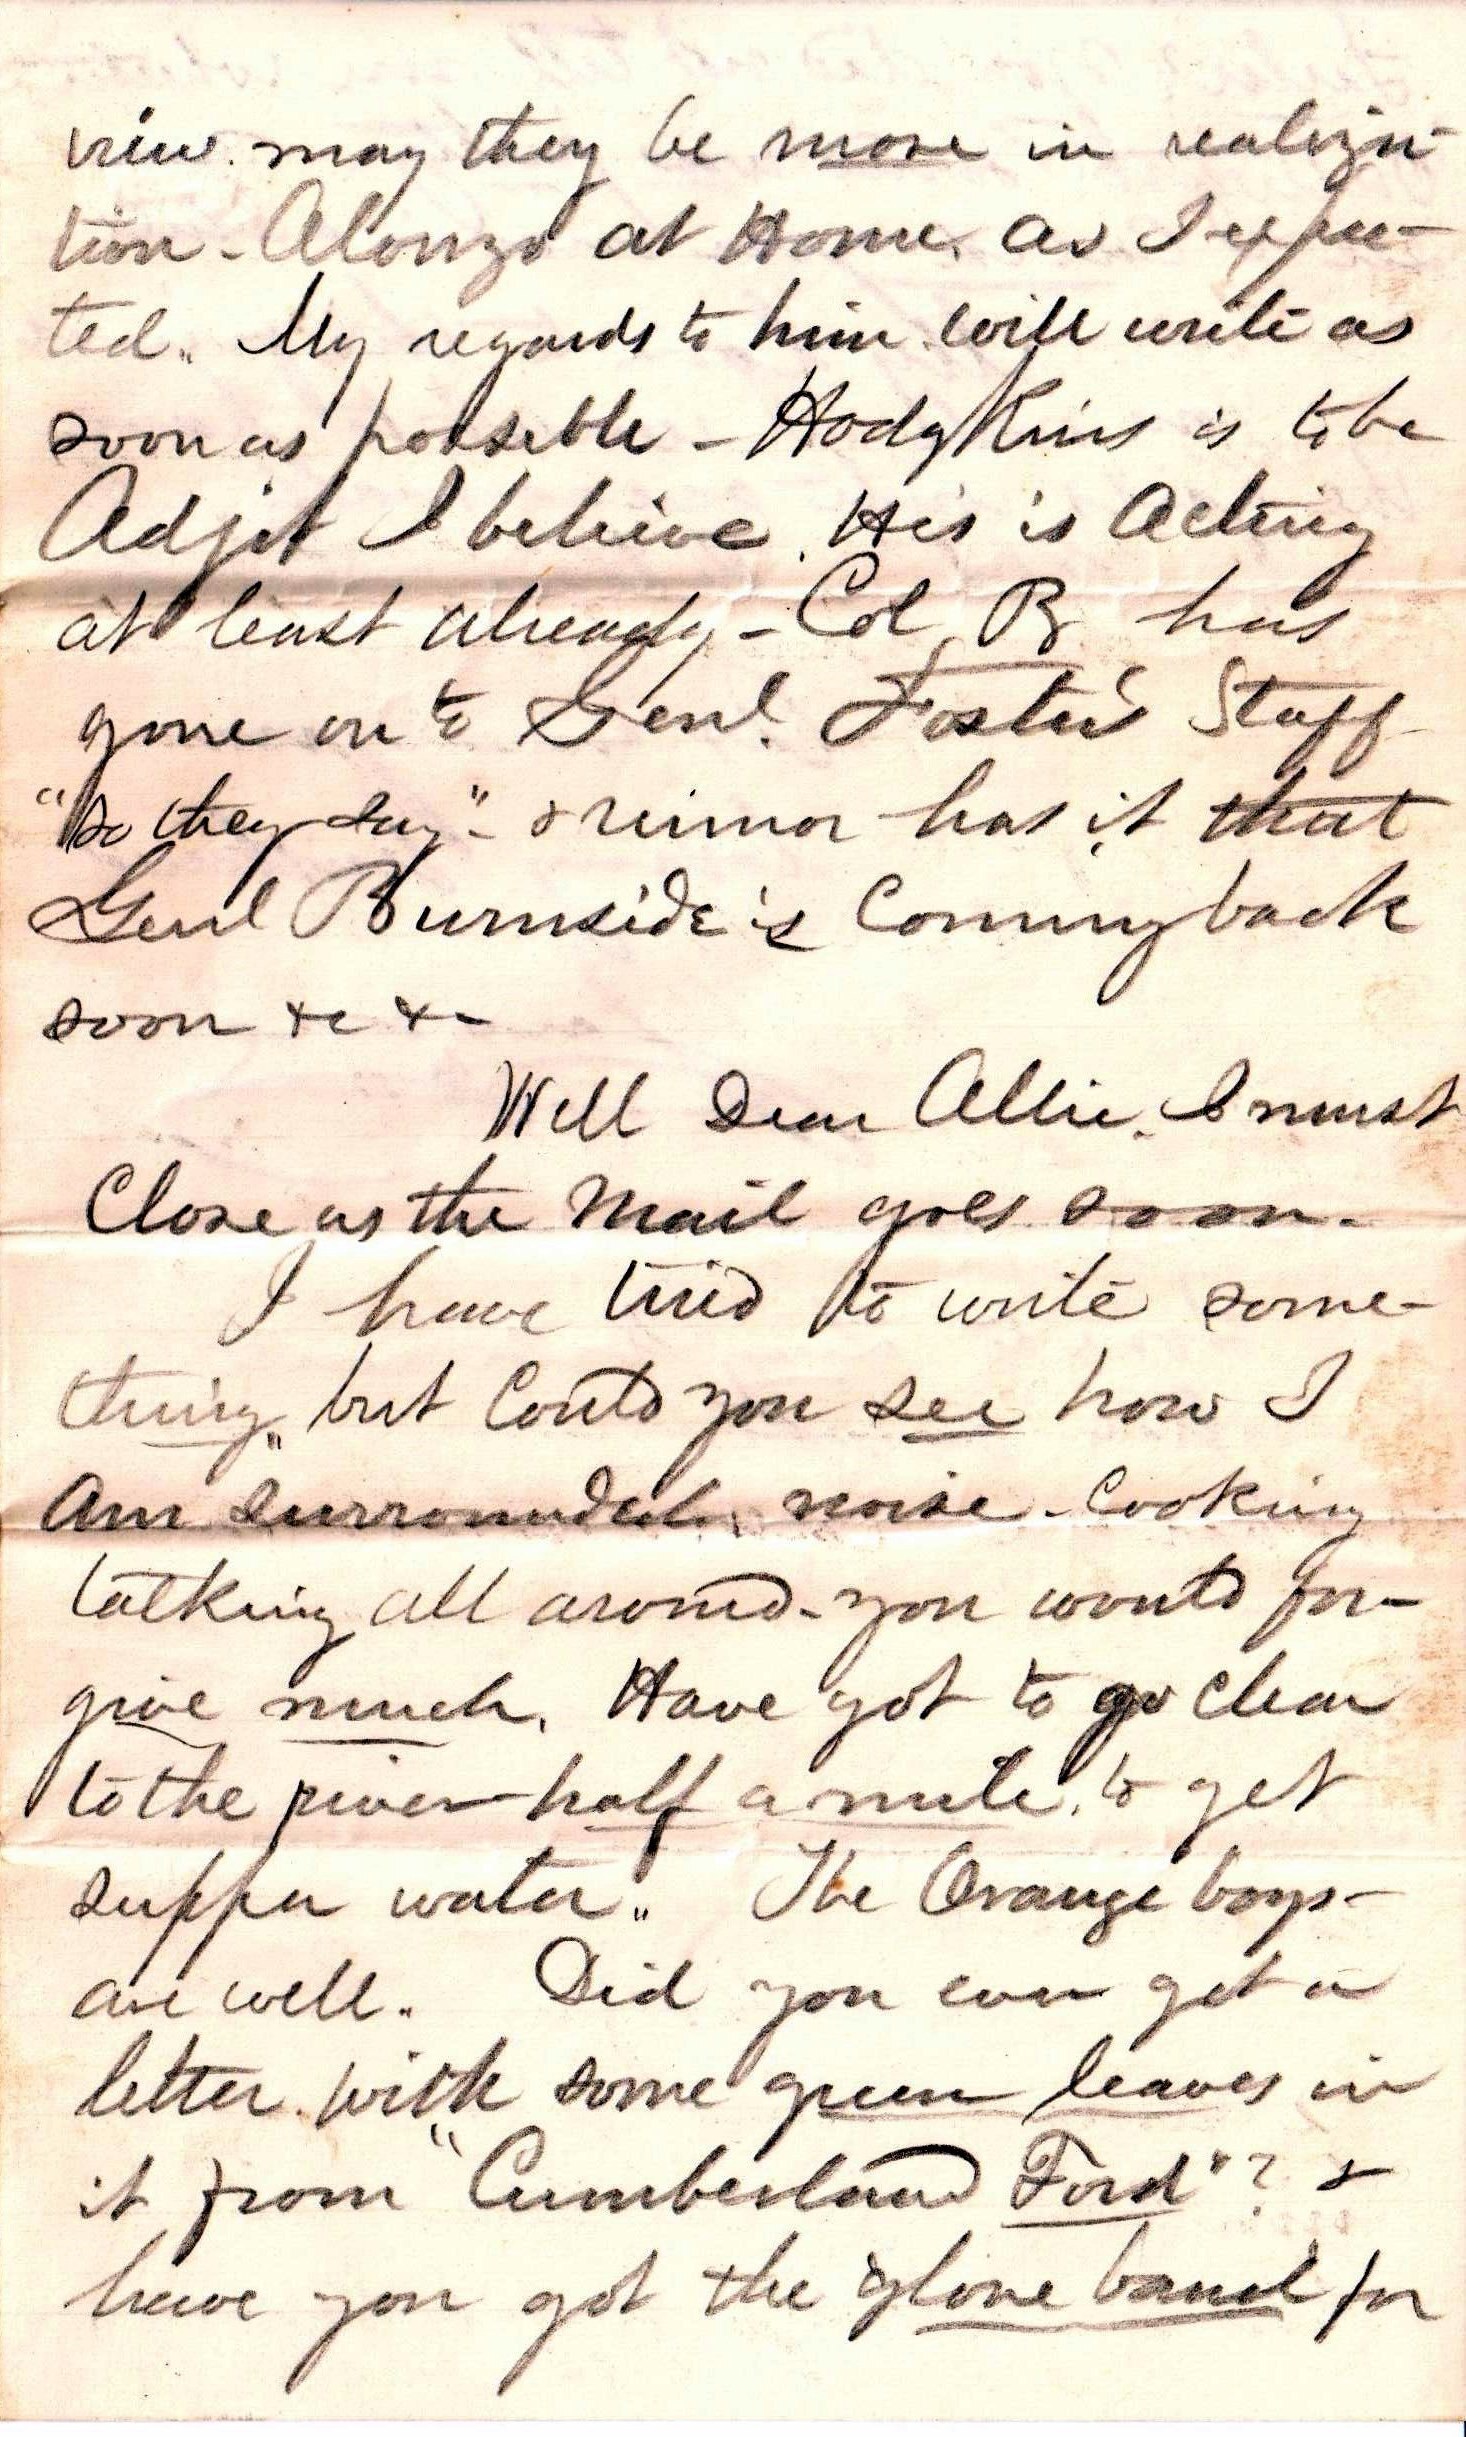 view. may they be more in realiza-
tion - Alonzo at Home. as I expec-
ted. My regards to him. Will write as
soon as possible - Hodgkins is to be
Adjt I believe. His is Acting
at least already - Col. B has
gone on to Genl. Foster's Staff
"so they say" - & rumor has it that
Genl Burnside is Coming back
soon &c &-
Well Dear Allie. I must
Close as the Mail goes soon.
I have tried to write some-
thing, but Could you see how I
Am surrounded, noise - Cooking
talking all around - you would for-
give much. Have got to go clear
to the river half a mile, to get
supper water. The Orange boys -
are well. Did you ever get a
letter with some green leaves in
it from "Cumberland Ford"? &
have you got the glove band for